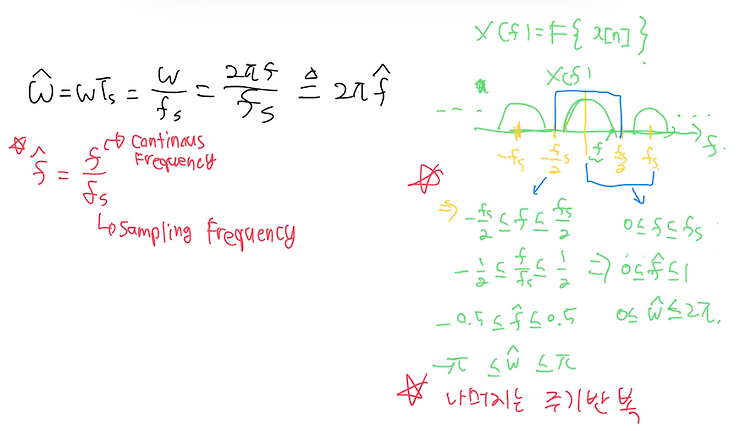 ŵ = wTs = w/fs = 2πf/fs ≜ 2πf̂
☆ f̂ = f/fs
↳ Continous Frequency
↳ Sampling Frequency
X(f) = F{x[n]}
X(f)
- - - ....
-fs -f/2 s f fs/2 fs f
☆
⇒ -fs/2 ≤ f ≤ fs/2 0 ≤ f ≤ fs
-1/2 ≤ f/fs ≤ 1/2 ⇒ 0 ≤ f̂ ≤ 1
-0.5 ≤ f̂ ≤ 0.5 0 ≤ ŵ ≤ 2π.
-π ≤ ŵ ≤ π
☆ 나머지는 주기반복